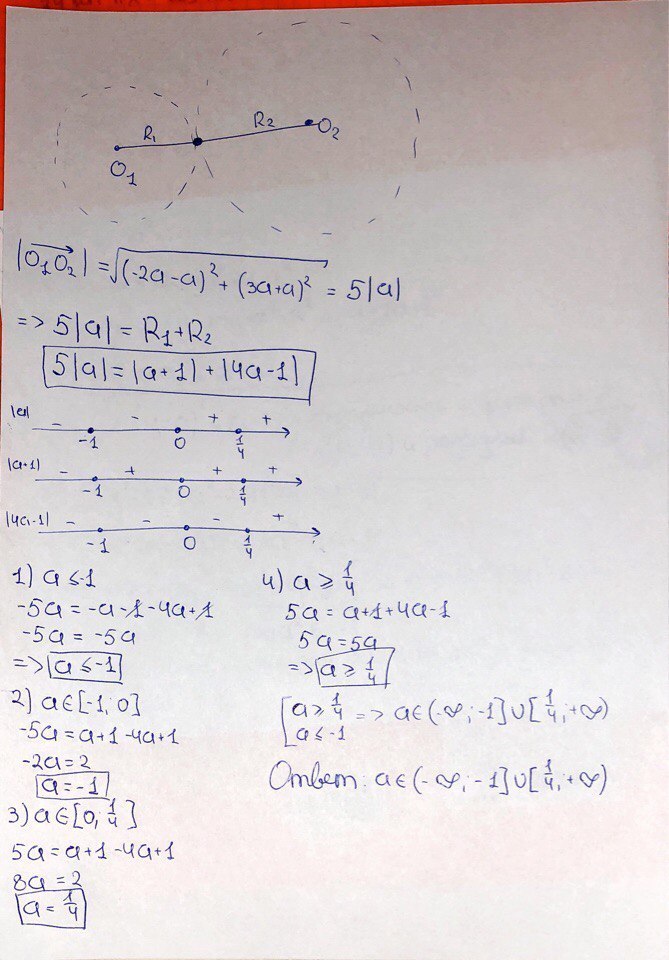 R₁ R₂ O₂
O₁
|O₁O₂| = √((-2a-a)² + (3a+a)²) = 5|a|
=> 5|a| = R₁+R₂
5|a| = |a+1| + |4a-1|
|a| - - + +
-1 0 1/4
|a+1| - + + +
-1 0 1/4
|4a-1| - - - +
-1 0 1/4
1) a ≤ -1
-5a = -a-1-4a+1
-5a = -5a
=> a ≤ -1
2) a∈[-1; 0]
-5a = a+1-4a+1
-2a = 2
a = -1
3) a∈[0; 1/4]
5a = a+1-4a+1
8a = 2
a = 1/4
4) a ≥ 1/4
5a = a+1+4a-1
5a = 5a
=> a ≥ 1/4
[ a ≥ 1/4 => a∈(-∞; -1]∪[1/4; +∞)
a ≤ -1
Ответ: a∈(-∞; -1]∪[1/4; +∞)